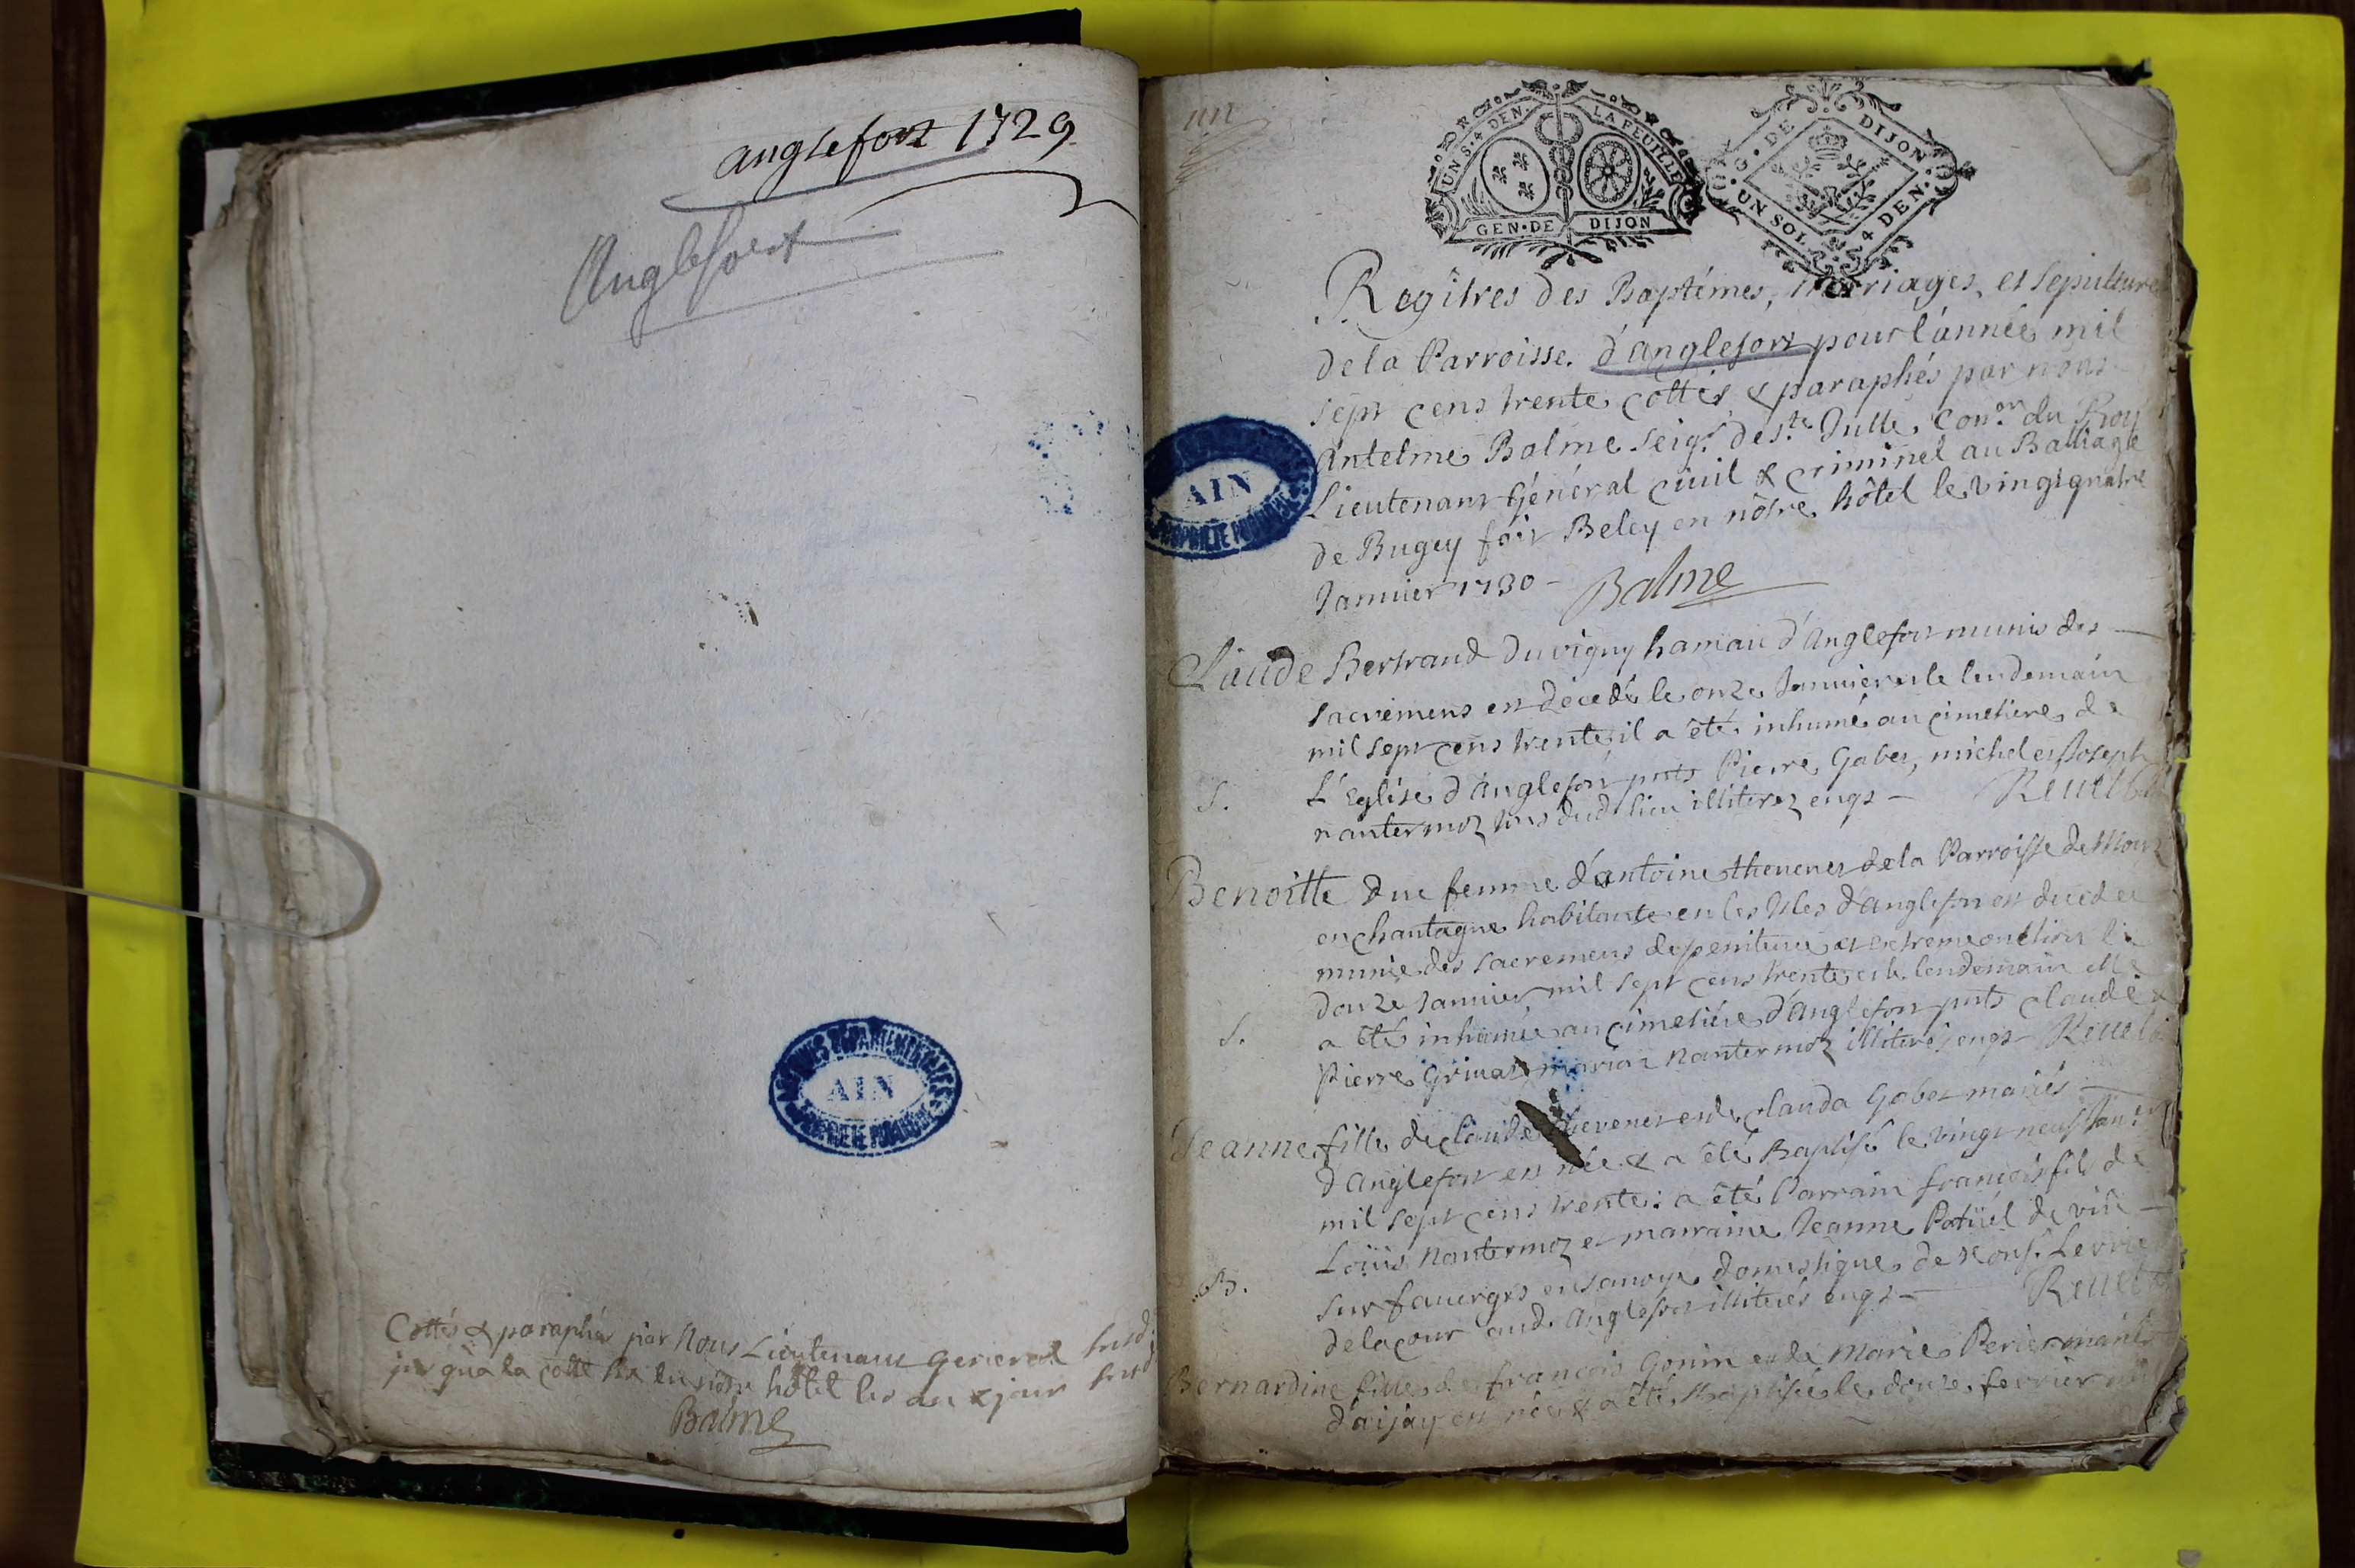 anglefort 1729
Anglefort
ARCHIVES DEPARTEMENTALES
AIN
PROPRIETE PUBLIQUE
Cottés & paraphés par Nous Lieutenant general susd.
jusqu'a la cotte six en nôtre hôtel les an & jour susd.
Balme
UN S. 4 DEN. LA FEUILLE
GEN. DE DIJON
G. DE DIJON
UN SOL 4 DEN.
AIN
PROPRIETE PUBLIQUE
Regîtres des Baptêmes, mariages, et sepultures
de la Parroisse d'anglefort pour l'année mil
sept cens trente cottés & paraphés par nous
Antelme Balme Seigr. de ste. Julle, Conser. du Roy
Lieutenant Général ciuil & criminel au Balliage
de Bugey fait Beley en nôtre hôtel le vingtquatre
Januier 1730 - Balme
Claude Bertrand du vigny hamau d'Anglefort munis des
sacremens est décedé le onze Januier et le lendemain
mil sept cens trente il a été inhumé au cimetiere de
L'Eglise d'Anglefort pnts Pierre Gabet, michel et Joseph
S.
nantermoz tous dud. lieu illiterez enqs - Reuel
Benoitte Duc femme d'antoine theuenet de la Parroisse de Mont
en chautagne habitante en les Isles d'anglefort est decedee
munie des sacremens de penitence et extreme onction le
douze Januier mil sept cens trente et le lendemain elle
a été inhumée au cimetiére d'Anglefort pnts claude &
S.
Pierre Griuaz marian Nantermoz illiteres enqs - Reuel
Jeanne fille de Claude theuenet et de clauda Gabet mariés
d'Anglefort est née & a été Baptisé le vingt neuf Janr.
mil sept cens trente: a été Parrain françois fils de
Loüis Nantermoz et marraine Jeanne Patüel de
B.
sur fauerges en sauoye domestique de Monsr.
delacour aud. Anglefort illiterés enqs - Reuel
Bernardine fille de françois Gonin et de Marie Perier mariés
est née & a été Baptisée le douze fevrier mil